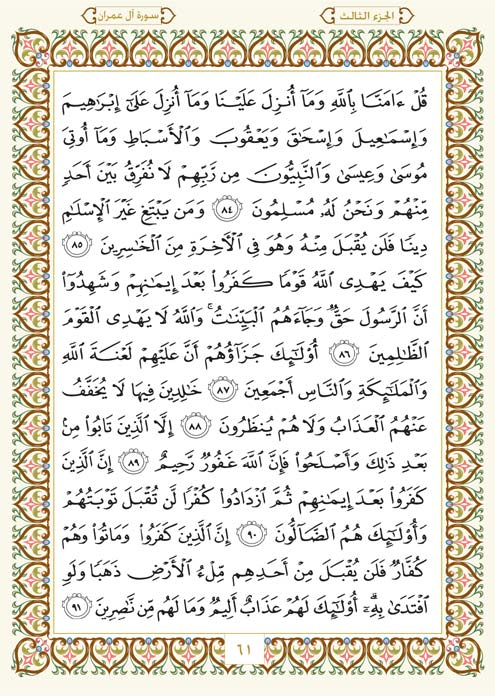 الجزء الثالث
سورة آل عمران
قُلْ ءَامَنَّا بِٱللَّهِ وَمَآ أُنزِلَ عَلَيْنَا وَمَآ أُنزِلَ عَلَىٰٓ إِبْرَٰهِيمَ
وَإِسْمَٰعِيلَ وَإِسْحَٰقَ وَيَعْقُوبَ وَٱلْأَسْبَاطِ وَمَآ أُوتِىَ
مُوسَىٰ وَعِيسَىٰ وَٱلنَّبِيُّونَ مِن رَّبِّهِمْ لَا نُفَرِّقُ بَيْنَ أَحَدٍ
مِّنْهُمْ وَنَحْنُ لَهُۥ مُسْلِمُونَ ٨٤ وَمَن يَبْتَغِ غَيْرَ ٱلْإِسْلَٰمِ
دِينًا فَلَن يُقْبَلَ مِنْهُ وَهُوَ فِى ٱلْءَاخِرَةِ مِنَ ٱلْخَٰسِرِينَ ٨٥
كَيْفَ يَهْدِى ٱللَّهُ قَوْمًا كَفَرُوا۟ بَعْدَ إِيمَٰنِهِمْ وَشَهِدُوٓا۟
أَنَّ ٱلرَّسُولَ حَقٌّ وَجَآءَهُمُ ٱلْبَيِّنَٰتُ ۚ وَٱللَّهُ لَا يَهْدِى ٱلْقَوْمَ
ٱلظَّٰلِمِينَ ٨٦ أُو۟لَٰٓئِكَ جَزَآؤُهُمْ أَنَّ عَلَيْهِمْ لَعْنَةَ ٱللَّهِ
وَٱلْمَلَٰٓئِكَةِ وَٱلنَّاسِ أَجْمَعِينَ ٨٧ خَٰلِدِينَ فِيهَا لَا يُخَفَّفُ
عَنْهُمُ ٱلْعَذَابُ وَلَا هُمْ يُنظَرُونَ ٨٨ إِلَّا ٱلَّذِينَ تَابُوا۟ مِنۢ
بَعْدِ ذَٰلِكَ وَأَصْلَحُوا۟ فَإِنَّ ٱللَّهَ غَفُورٌ رَّحِيمٌ ٨٩ إِنَّ ٱلَّذِينَ
كَفَرُوا۟ بَعْدَ إِيمَٰنِهِمْ ثُمَّ ٱزْدَادُوا۟ كُفْرًا لَّن تُقْبَلَ تَوْبَتُهُمْ
وَأُو۟لَٰٓئِكَ هُمُ ٱلضَّآلُّونَ ٩٠ إِنَّ ٱلَّذِينَ كَفَرُوا۟ وَمَاتُوا۟ وَهُمْ
كُفَّارٌ فَلَن يُقْبَلَ مِنْ أَحَدِهِم مِّلْءُ ٱلْأَرْضِ ذَهَبًا وَلَوِ
ٱفْتَدَىٰ بِهِۦٓ ۗ أُو۟لَٰٓئِكَ لَهُمْ عَذَابٌ أَلِيمٌ وَمَا لَهُم مِّن نَّٰصِرِينَ ٩١
٦١